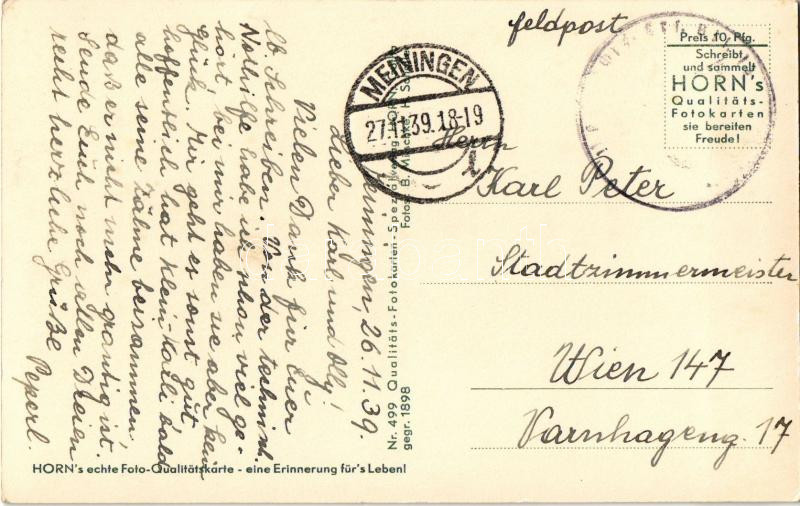 Meiningen, 26.11.39.
Lieber Karl und Olly!
Vielen Dank für Euer
lb. Schreiben. Von der technisch.
Nothilfe habe ich schon viel ge-
hört, bei mir haben sie aber kein
glück. Mir geht es sonst gut
hoffentlich hat Klein-Kalli bald
alle seine Zähne beisammen,
daß er nicht mehr grantig ist.
Sende Euch noch allen Dreien
recht herzliche Grüße
Peperl.
HORN's echte Foto-Qualitätskarte - eine Erinnerung für's Leben!
Nr. 499 Qualitäts-Fotokarten-Spezialverlag HORN
gegr. 1898
Fotos: B.
feldpost
MEININGEN
27.11.39.18-19
1
Preis 10 Pfg.
Schreibt
und sammelt
HORN's
Qualitäts-
Fotokarten
sie bereiten
Freude!
Herrn
Karl Peter
Stadtzimmermeister
Wien 147
Varnhageng. 17